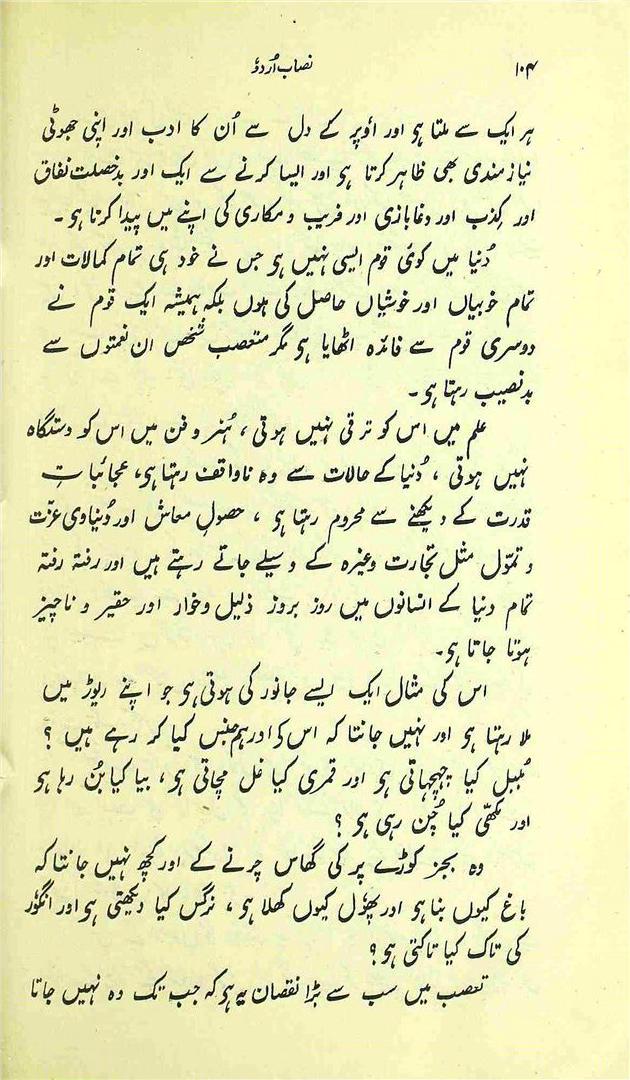 ۱۰۴ نصاب اُردوٗ
ہر ایک سے ملتا ہو اور اوٗپر کے دل سے اُن کا ادب اور اپنی جھوٹی
نیاز مندی بھی ظاہر کرتا ہو اور ایسا کرنے سے ایک اور بدخصلت نفاق
اور کِذب اور دغابازی اور فریب و مکاری کی اپنے میں پیدا کرتا ہو۔
دُنیا میں کوئی قوم ایسی نہیں ہو جس نے خود ہی تمام کمالات اور
تمام خوبیاں اور خوشیاں حاصل کی ہوں بلکہ ہمیشہ ایک قوم نے
دوسری قوم سے فائدہ اٹھایا ہو مگر متعصب شخص ان نعمتوں سے
بدنصیب رہتا ہو۔
علم میں اس کو ترقی نہیں ہوتی، ہُنر و فن میں اس کو دستگاہ
نہیں ہوتی، دُنیا کے حالات سے وہ ناواقف رہتا ہو، عجائباتِ
قدرت کے دیکھنے سے محروم رہتا ہو، حصولِ معاش اور دُنیاوی عزّت
و تموّل مثل تجارت وغیرہ کے وسیلے جاتے رہتے ہیں اور رفتہ رفتہ
تمام دنیا کے انسانوں میں روز بروز ذلیل و خوار اور حقیر و ناچیز
ہوتا جاتا ہو۔
اس کی مثال ایک ایسے جانور کی ہوتی ہو جو اپنے ریوڑ میں
ملا رہتا ہو اور نہیں جانتا کہ اس کے اور ہم جنس کیا کر رہے ہیں؟
بُلبل کیا چہچہاتی ہو اور قمری کیا غل مچاتی ہو، بیا کیا بُن رہا ہو
اور مکھّی کیا چُن رہی ہو؟
وہ بجز کوڑے پر کی گھاس چرنے کے اور کچھ نہیں جانتا کہ
باغ کیوں بنا ہو اور پھوٗل کیوں کھلا ہو، نرگس کیا دیکھتی ہو اور انگوٗر
کی تاک کیا تاکتی ہو؟
تعصب میں سب سے بڑا نقصان یہ ہو کہ جب تک وہ نہیں جاتا